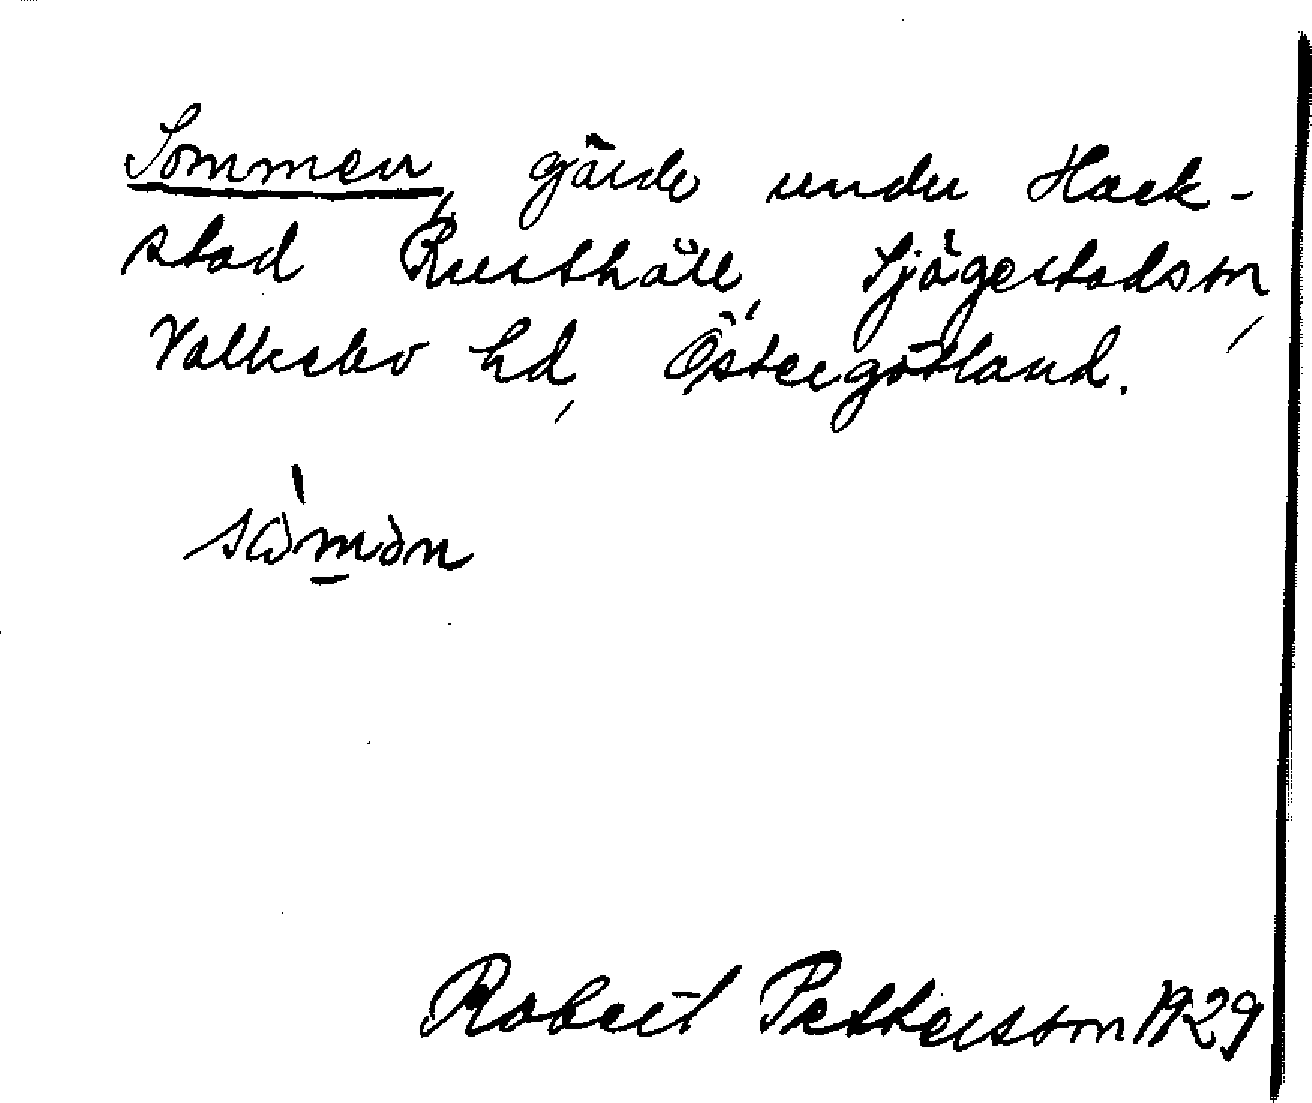 Sommen, gärde under Hack-
stad Rusthåll, Sjögestad sn,
Valkebo hd, Östergötland.
Robert Pettersson 1929